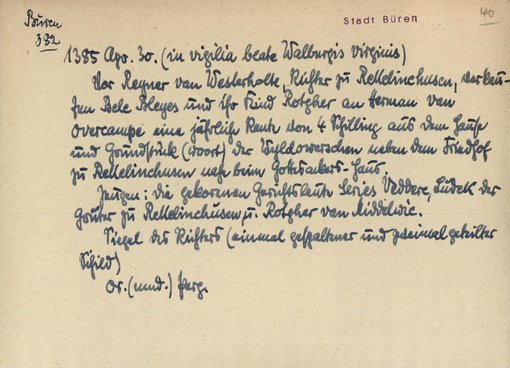 Büren
382
Stadt Büren
40
1385 Apr. 30. (in vigilia beate Walburgis virginis)
Vor Reyner van Westerholte, Richter zu Rekelinchusen, verkau-
fen Bele Bleyes und ihr Kind Rotgher an Herman van
Overcampe eine jährliche Rente von 4 Schilling aus dem Hause
und Grundstück (woort) der Wyldoverschen neben dem Friedhof
zu Rekelinchusen nahe beim Gottesackers-Haus.
Zeugen: die gekornen Gerichtsleute Series Veddere, Ludek der
Gouter zu Rekelinchusen u. Rotgher van Middelwic.
Siegel des Richters (einmal gespaltener und zweimal geteilter
Schild)
Or. (mnd.) Perg.